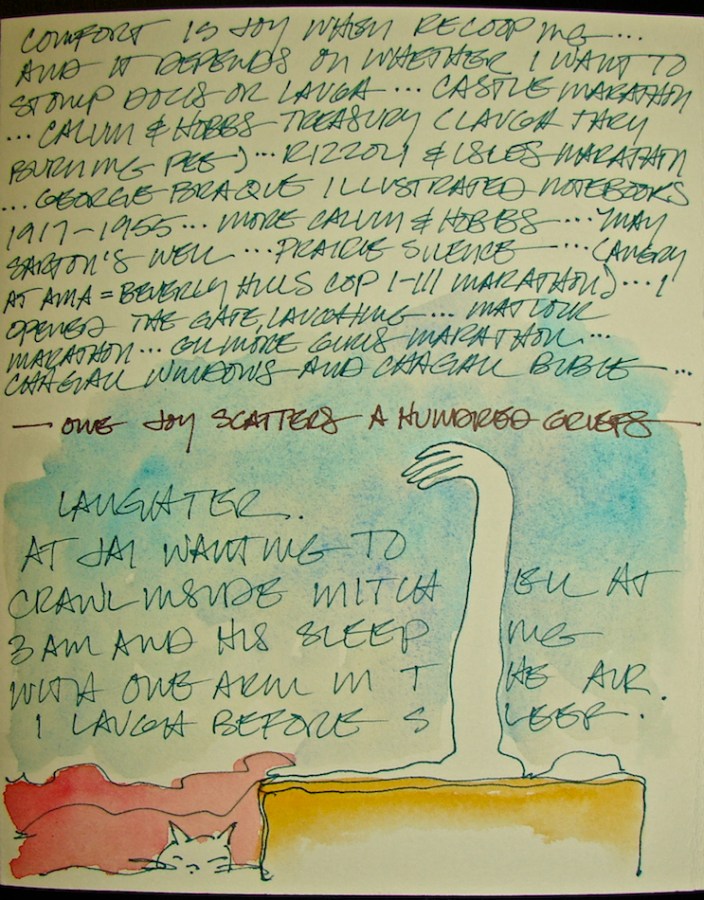 COMFORT IS JOY WHEN RECOOPING...
AND IT DEPENDS ON WHETHER I WANT TO
STOMP DOLLS OR LAUGH ... CASTLE MARATHON
... CALVIN & HOBBS TREASURY (LAUGH TARY
BURNING PEE) ... RIZZOLI & ISLES MARATHON
... GEORGE BRAQUE ILLUSTRATED NOTEBOOKS
1917-1955 ... MORE CALVIN & HOBBS ... MAY
SARTON'S WELL ... PRAIRIE SILENCE ... (ANGRY
AT AMA = BEVERLY HILLS COP I-III MARATHON) ... I
OPENED THE GATE, LAUGHING ... MATLOCK
MARATHON ... GILMORE GIRLS MARATHON ...
CHAGALL WINDOWS AND CHAGALL BIBLE ...
— ONE JOY SCATTERS A HUNDRED GRIEFS —
LAUGHTER.
AT JAI WANTING TO
CRAWL INSIDE MITCHELL AT
3 AM AND HIS SLEEPING
WITH ONE ARM IN THE AIR.
I LAUGH BEFORE SLEEP.